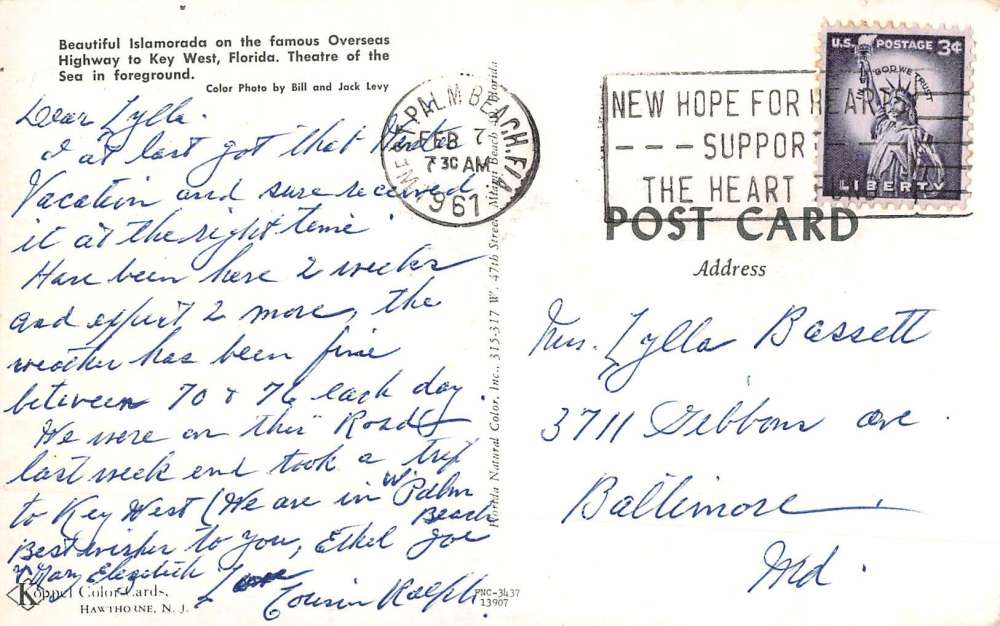 Beautiful Islamorada on the famous Overseas
Highway to Key West, Florida. Theatre of the
Sea in foreground.
Color Photo by Bill and Jack Levy
Dear Lylla.
I at last got that Winter
Vacation and sure received
it at the right time
Have been here 2 weeks
and expect 2 more, the
weather has been fine
between 70 & 76 each day.
We were on this Road
last week end took a trip
to Key West (We are in W. Palm
Beach
Best wishes to you, Ethel Joe
& Mary Elizabeth Love
Cousin Ralph.
Koppel Color Cards,
HAWTHORNE, N. J.
FNC-3437
13907
Florida Natural Color, Inc., 315-317 W. 47th Street, Miami Beach, Florida
WEST PALM BEACH, FLA.
FEB 7
7 30 AM
1961
NEW HOPE FOR HEARTS
--- SUPPORT
THE HEART FUND
U.S. POSTAGE 3¢
IN GOD WE TRUST
LIBERTY
POST CARD
Address
Mrs. Lylla Bassett
3711 Gibbons Ave.
Baltimore
Md.